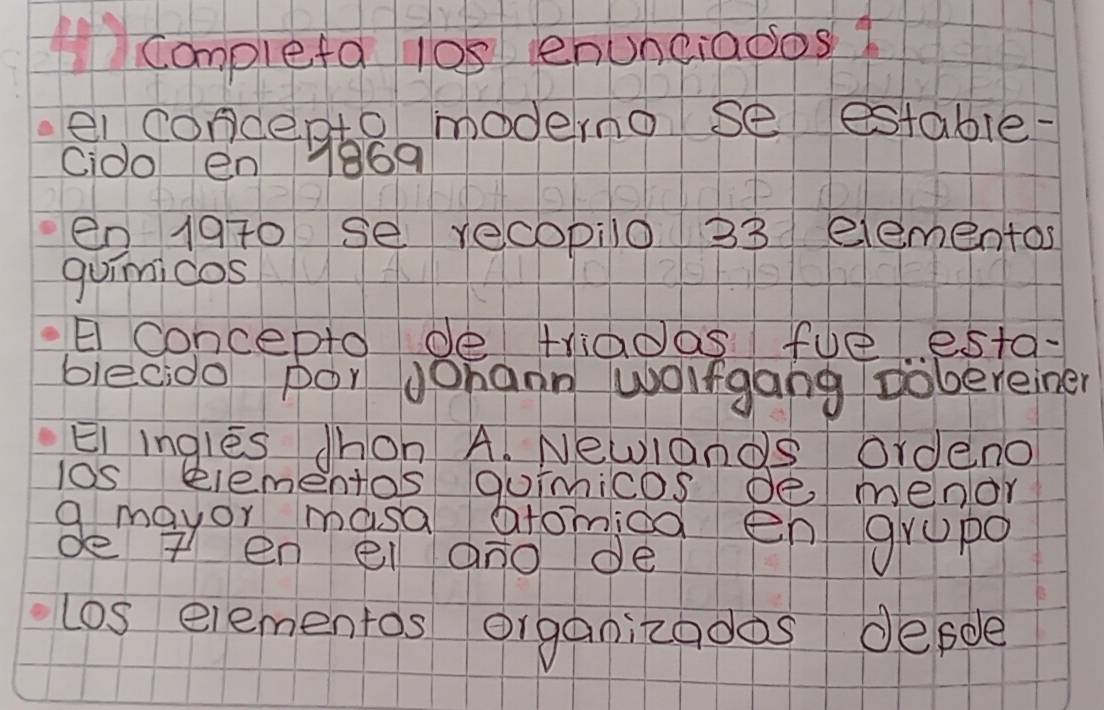 4) Completa los enunciados:
• el concepto moderno se estable-
cido en 1869
• en 1970 se recopilo 33 elementos
químicos
• El concepto de triadas fue esta-
blecido por Johann wolfgang Döbereiner
• El inglés Jhon A. Newlands ordeno
los elementos químicos de menor
a mayor masa atómica en grupo
de 7 en el año de
• Los elementos organizados desde